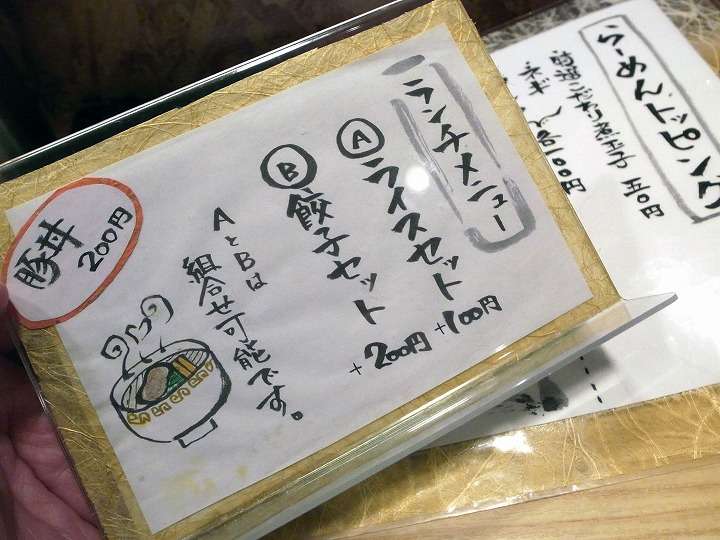 ランチメニュー
Ⓐ ライスセット +100円
Ⓑ 餃子セット +200円
AとBは
組合せ可能です。
豚丼
200円
らーめんトッピング
こだわり煮玉子 五〇円
ネギ